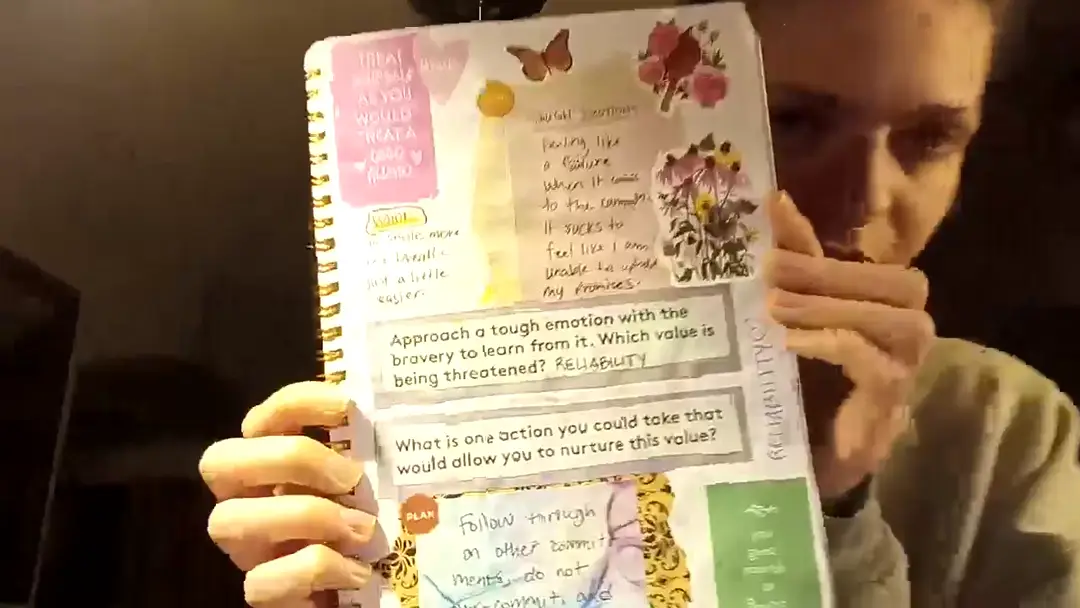 TREAT
AS YOU
WOULD
TREAT A
GOOD
Tough Emotions
Feeling like
a failure
when it
to the
It sucks to
feel like I am
unable to uphold
my promises.
smile more
just a little
easier.
Approach a tough emotion with the
bravery to learn from it. Which value is
being threatened? RELIABILITY
What is one action you could take that
would allow you to nurture this value?
RELIABILITY
PLAN
Follow through
on other commit
ments, do not
and